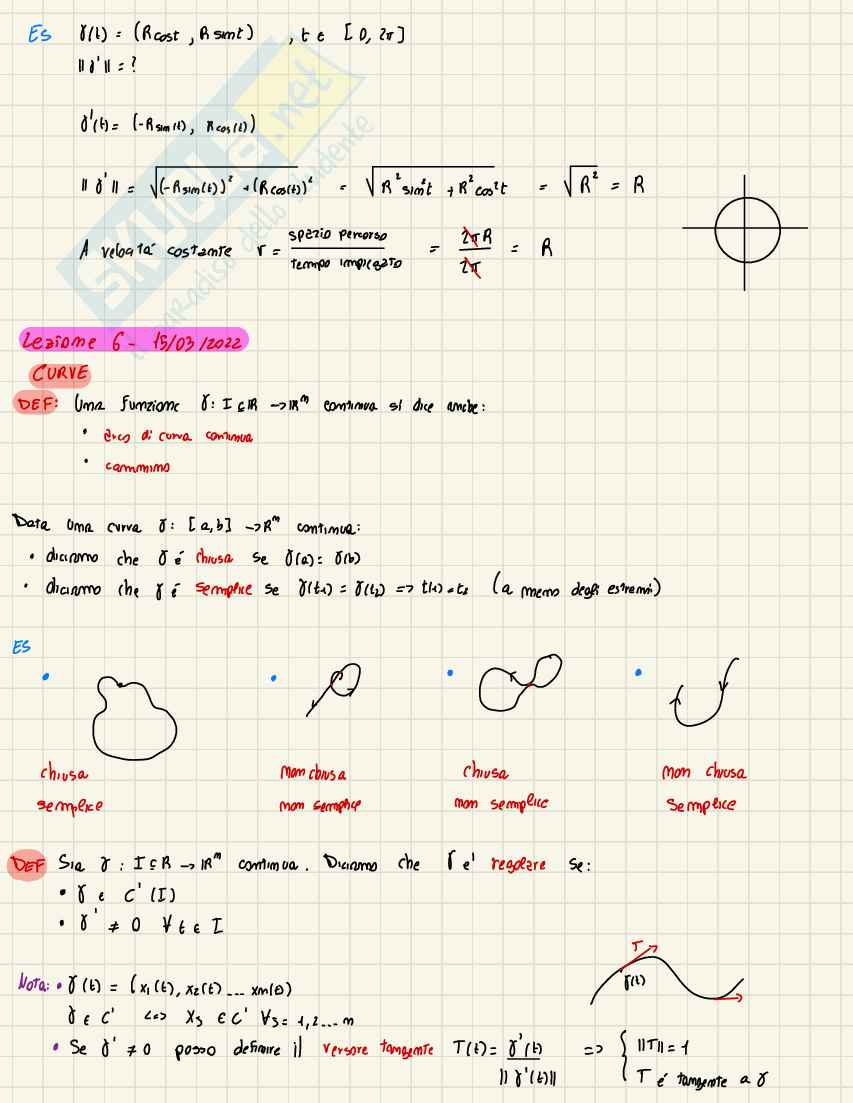 ES γ(t) = (Rcost, Rsint) , t ∈ [0, 2π]
||γ'|| = ?
γ'(t) = (-Rsin(t), Rcos(t))
||γ'|| = √((-Rsin(t))² + (Rcos(t))²) = √(R²sin²t + R²cos²t) = √R² = R
A velocità costante v = spazio percorso / tempo impiegato = 2πR / 2π = R
SKUOLA.net
il paradiso dello studente
Lezione 6 - 15/03/2022
CURVE
DEF: Una funzione γ: I ⊆ IR -> IRⁿ continua si dice anche:
• arco di curva continua
• cammino
Data una curva γ: [a,b] -> Rⁿ continua:
• diciamo che γ é chiusa se γ(a) = γ(b)
• diciamo che γ é semplice se γ(t₁) = γ(t₂) => t(1) = t₂ (a meno degli estremi)
ES
• • • •
chiusa non chiusa chiusa non chiusa
semplice non semplice non semplice semplice
DEF Sia γ: I ⊆ R -> IRⁿ continua. Diciamo che Γ e' regolare se:
• γ ∈ C'(I)
• γ' ≠ 0 ∀ t ∈ I
T
γ(t)
Nota: • γ(t) = (x₁(t), x₂(t) ... xn(t))
γ ∈ C' <=> xȷ ∈ C' ∀ȷ = 1,2...n
• Se γ' ≠ 0 posso definire il versore tangente T(t) = γ'(t) / ||γ'(t)|| => { ||T|| = 1
T é tangente a γ